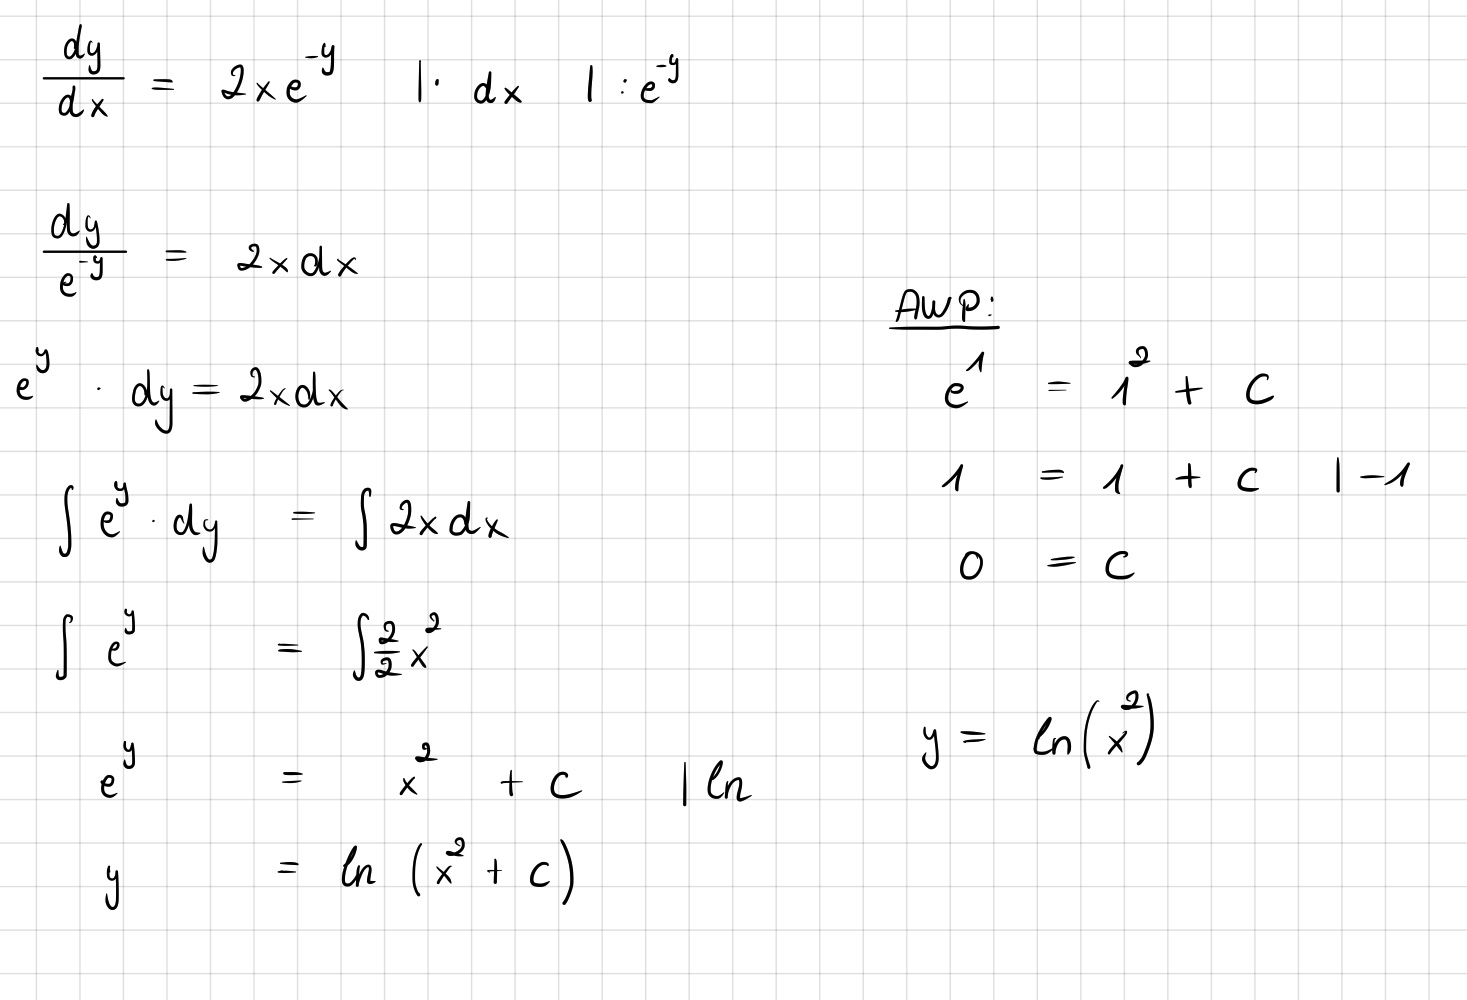 dy/dx = 2xe^-y |· dx | : e^-y
dy/e^-y = 2x dx
e^y · dy = 2x dx
∫ e^y · dy = ∫ 2x dx
∫ e^y = ∫ 2/2 x^2
e^y = x^2 + c | ln
y = ln (x^2 + c)
AWP:
e^1 = 1^2 + C
1 = 1 + c | -1
0 = c
y = ln(x^2)